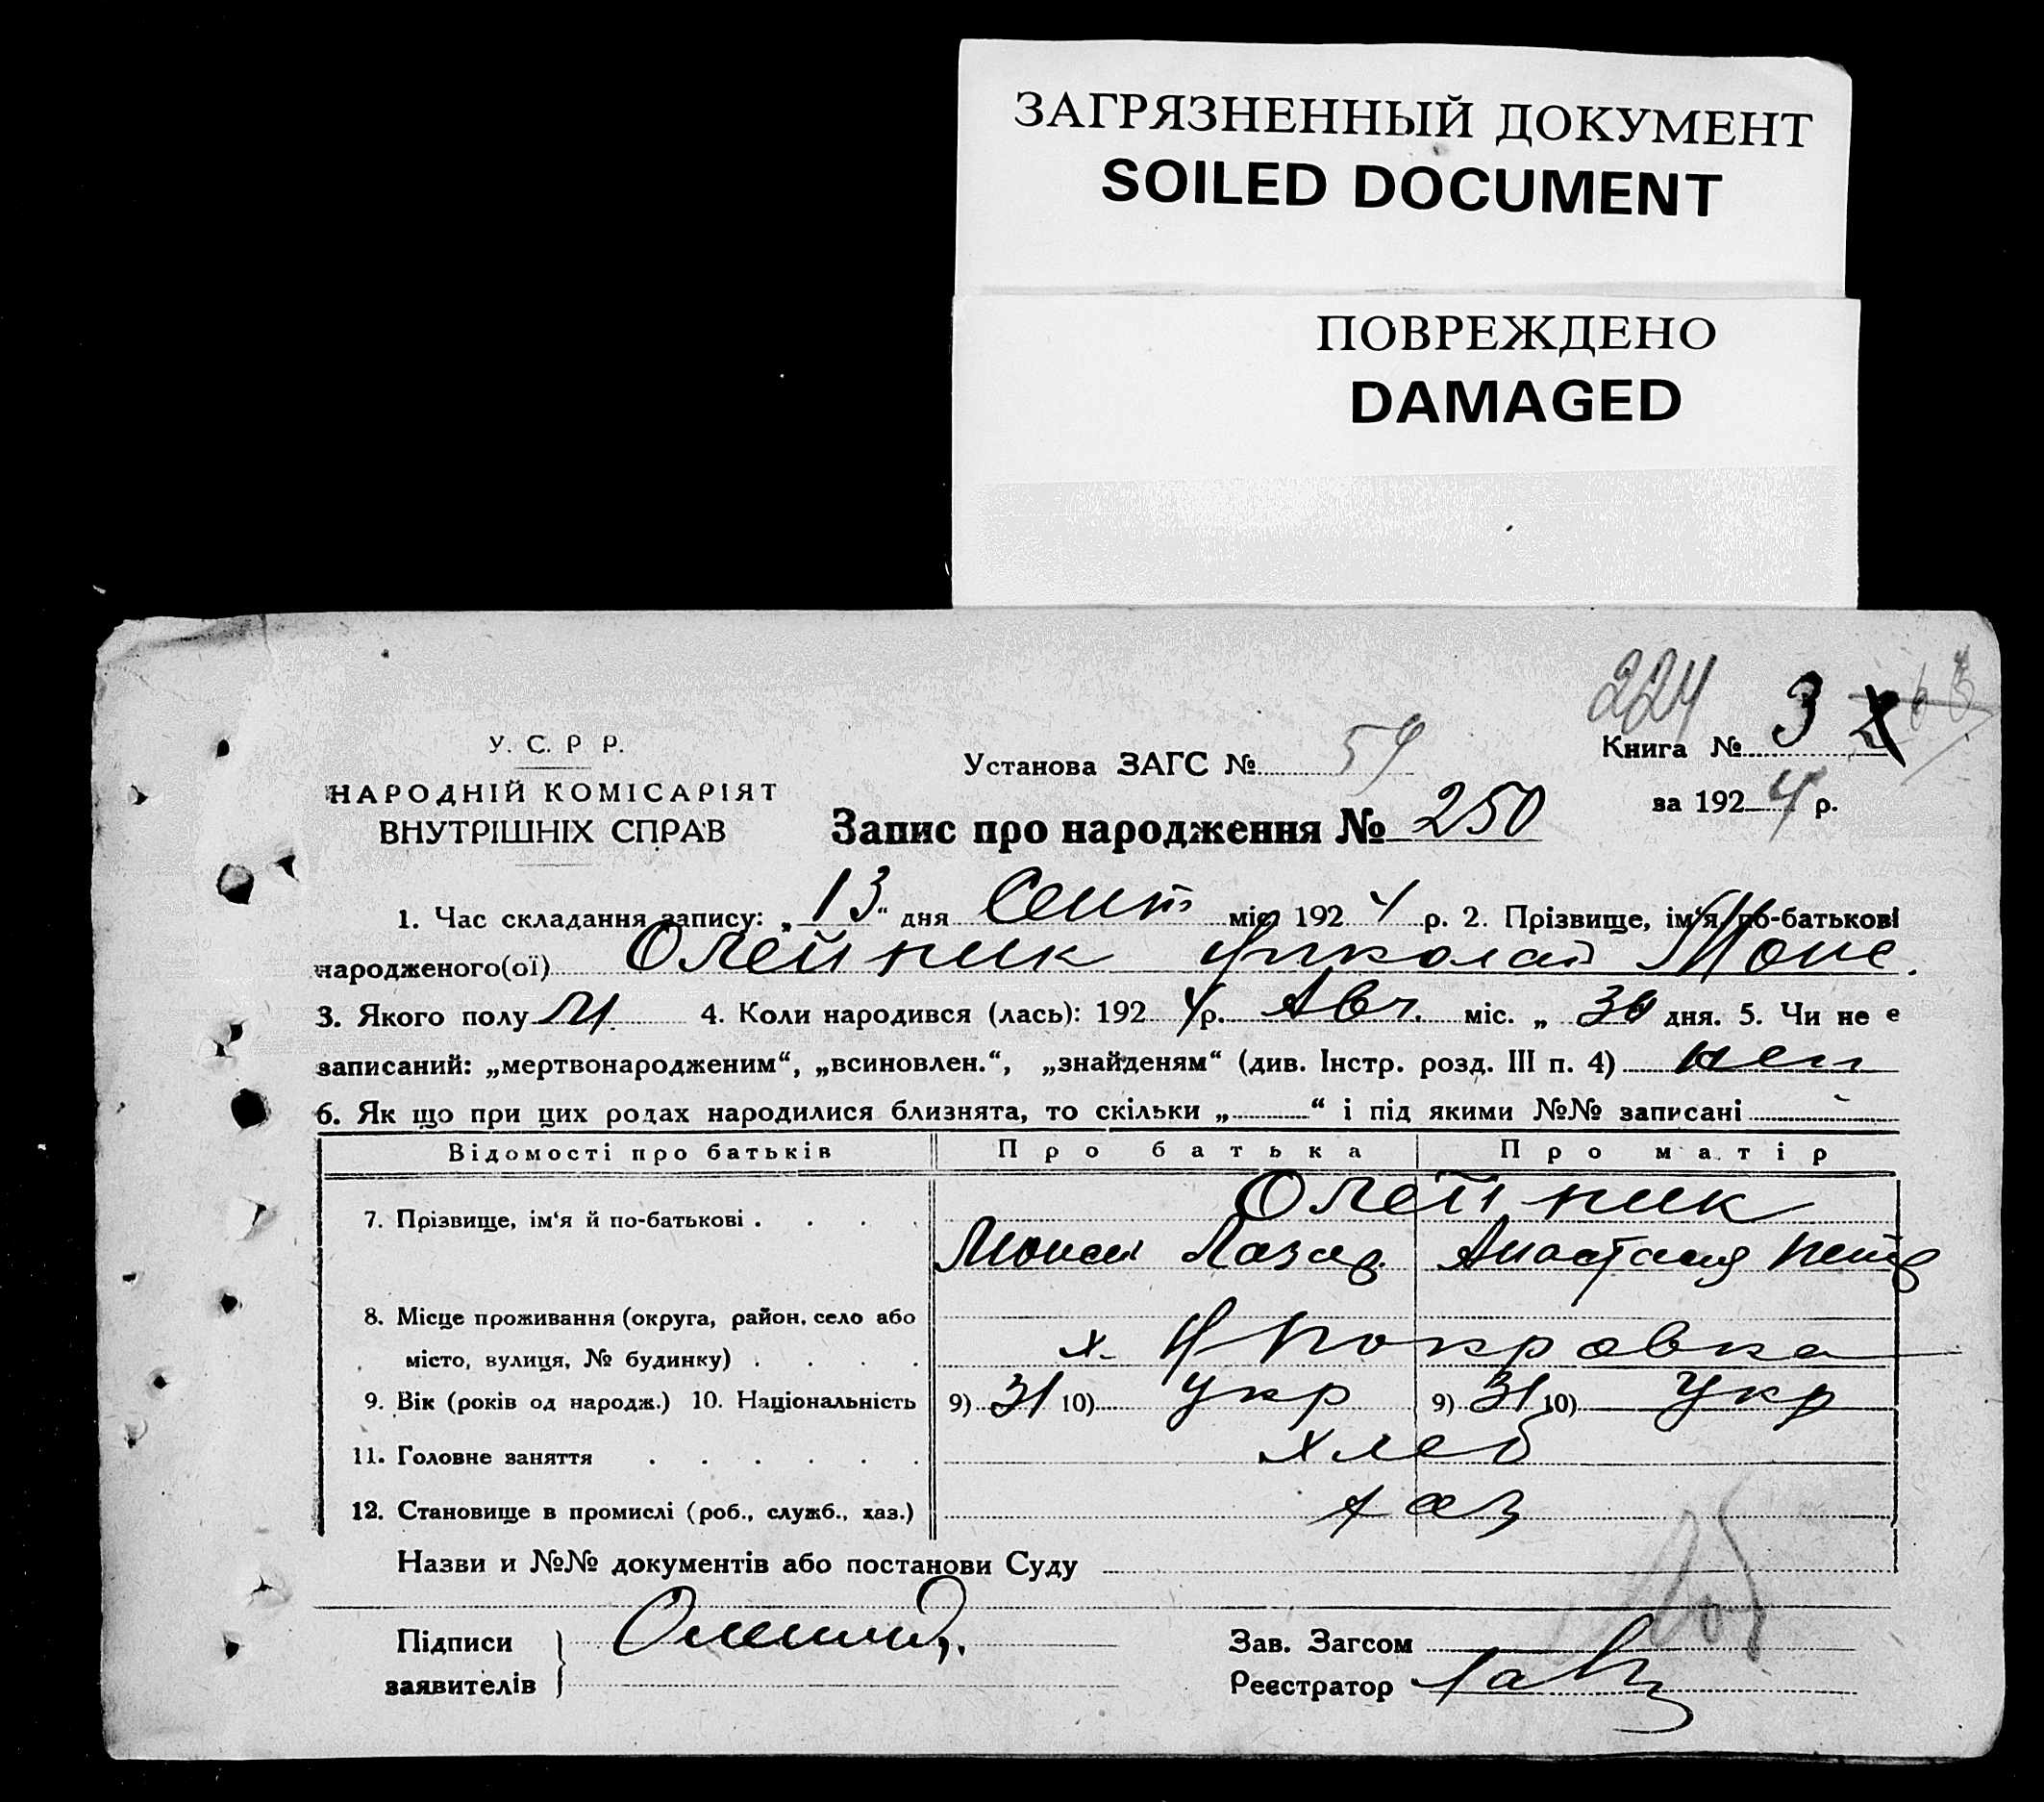 ЗАГРЯЗНЕННЫЙ ДОКУМЕНТ
SOILED DOCUMENT
ПОВРЕЖДЕНО
DAMAGED
224
У. С. Р Р.
НАРОДНІЙ КОМІСАРІЯТ
ВНУТРІШНІХ СПРАВ
Установа ЗАГС № 59
Книга № 3
за 1924 р.
Запис про народження № 250
1. Час складання запису: „13“ дня Сент міс 1924 р. 2. Прізвище, ім'я по-батькові
народженого(ої) Олейник Николай Моис.
3. Якого полу М. 4. Коли народився (лась): 1924 р. Авг. міс. „30 дня. 5. Чи не є
записаний: „мертвонародженим“, „всиновлен.“, „знайденям“ (див. Інстр. розд. III п. 4) нет
6. Як що при цих родах народилися близнята, то скільки „ “ і під якими №№ записані
Відомості про батьків Про батька Про матір
7. Прізвище, ім'я й по-батькові . . . . Олейник
Моисей Лазар. Анастасия Петр
8. Місце проживання (округа, район, село або
місто, вулиця, № будинку) . . . . х.
9. Вік (років од народж.) 10. Національність 9) 31 10) Укр 9) 31 10) Укр
11. Головне заняття . . . . . . Хлеб
12. Становище в промислі (роб., служб., хаз.) хаз
Назви и №№ документів або постанови Суду
Підписи
заявителів
Зав. Загсом
Реєстратор